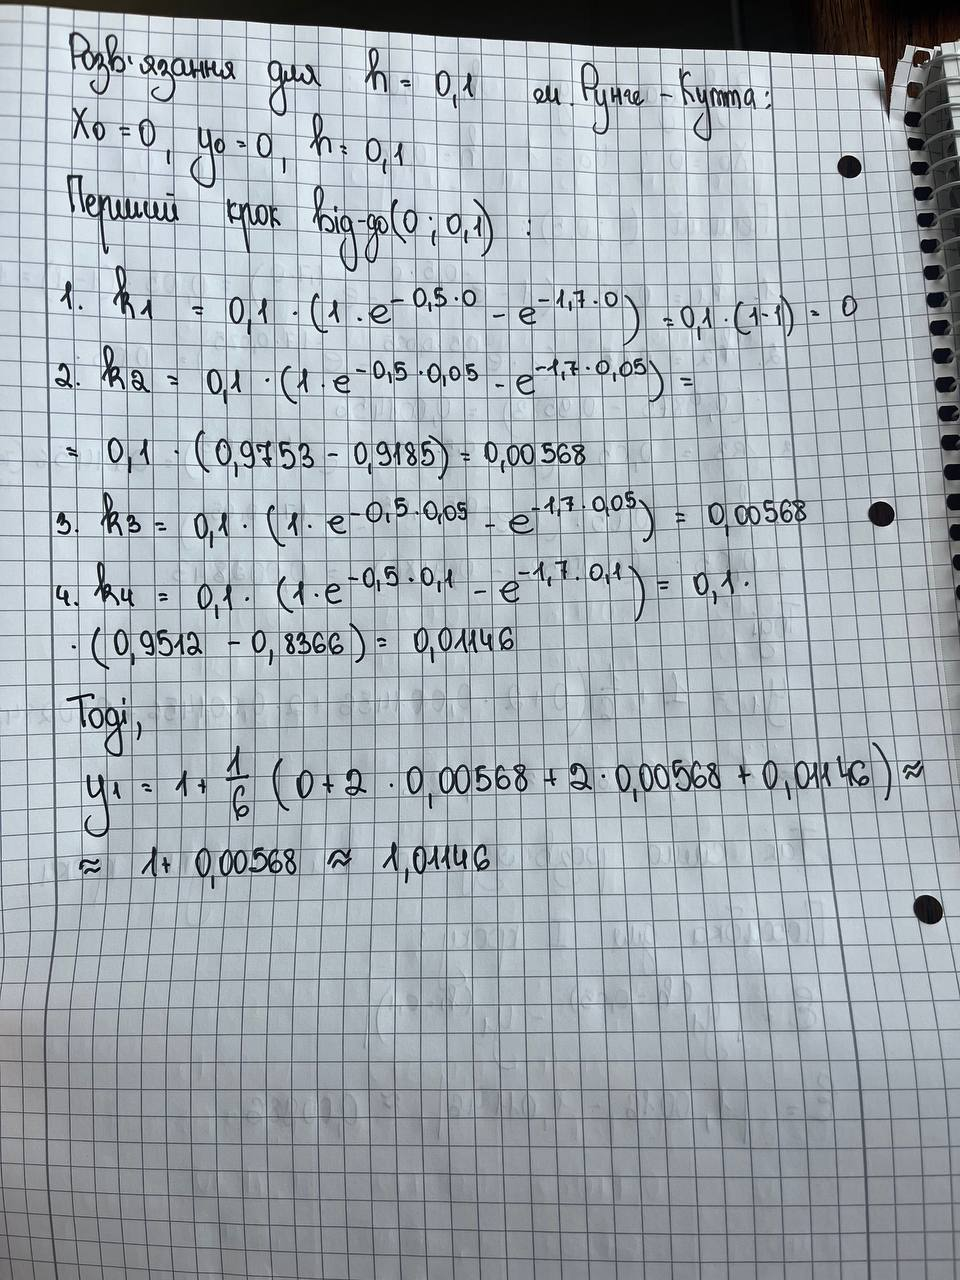 Розв'язання для h = 0,1 м. Рунге - Кутта:
x0 = 0, y0 = 0, h = 0,1
Перший крок від-до (0 ; 0,1) :
1. k1 = 0,1 · (1 · e^-0,5·0 - e^-1,7·0) = 0,1 · (1-1) = 0
2. k2 = 0,1 · (1 · e^-0,5·0,05 - e^-1,7·0,05) =
= 0,1 · (0,9753 - 0,9185) = 0,00568
3. k3 = 0,1 · (1 · e^-0,5·0,05 - e^-1,7·0,05) = 0,00568
4. k4 = 0,1 · (1 · e^-0,5·0,1 - e^-1,7·0,1) = 0,1 ·
· (0,9512 - 0,8366) = 0,01146
Тоді,
y1 = 1 + 1/6 (0 + 2 · 0,00568 + 2 · 0,00568 + 0,01146) ≈
≈ 1 + 0,00568 ≈ 1,01146